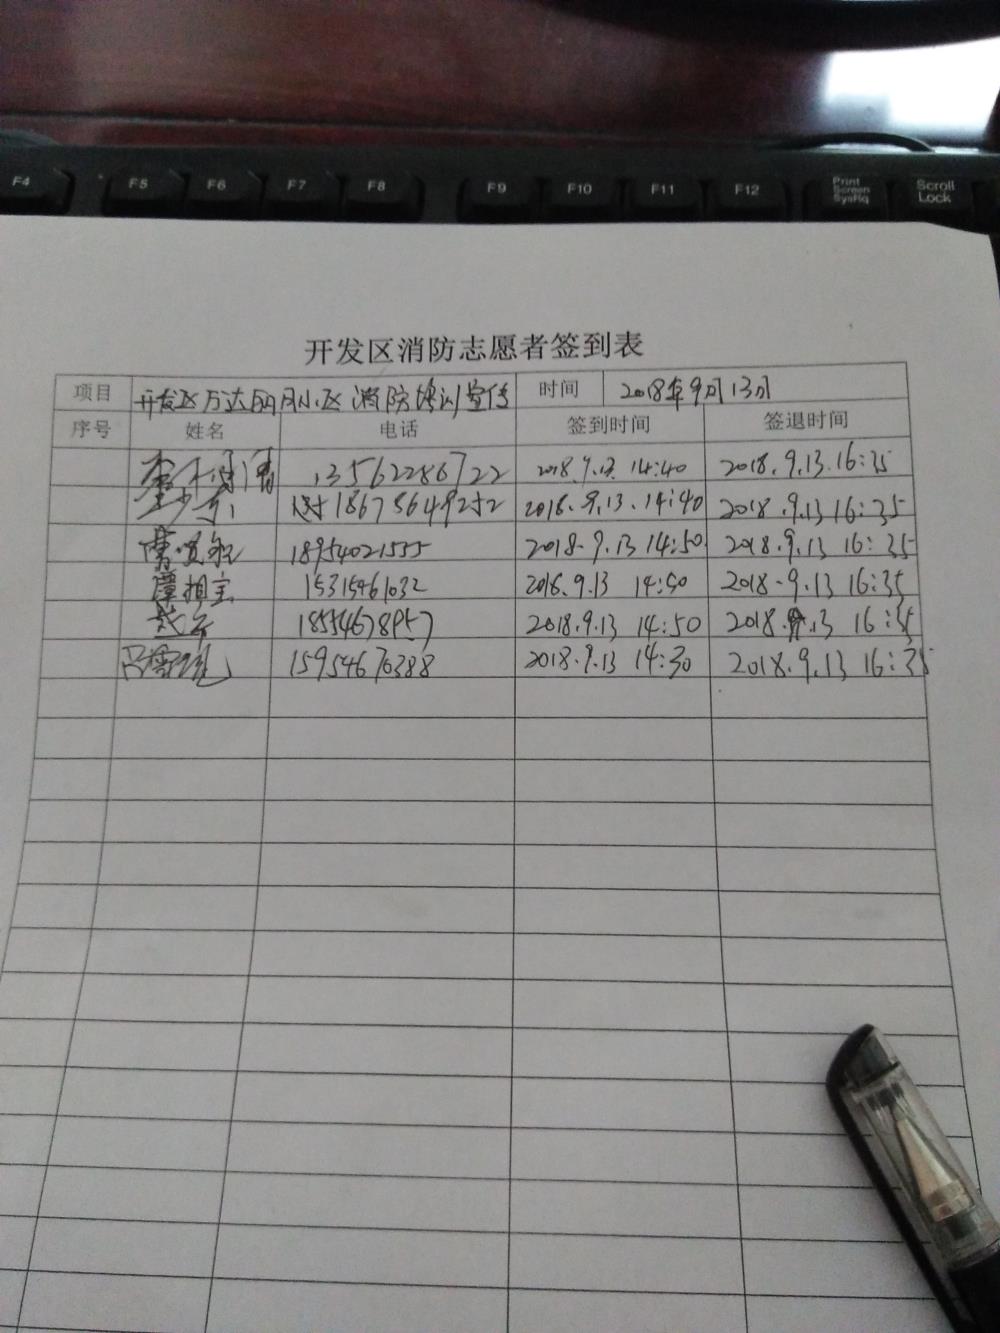 F4 F5 F6 F7 F8 F9 F10 F11 F12 Print Screen SysRq Scroll Lock
开发区消防志愿者签到表
项目 开发区万达明月小区消防培训宣传 时间 2018年9月13日
序号 姓名 电话 签到时间 签退时间
13562286722 2018.9.13. 14:40 2018.9.13.16:35
18678649252 2018.9.13.14:40 2018.9.13 16:35
18954021555 2018.9.13 14:50 2018.9.13 16:35
15315461032 2018.9.13 14:50 2018.9.13 16:35
18554678957 2018.9.13 14:50 2018.9.13 16:35
15954670388 2018.9.13 14:30 2018.9.13 16:35